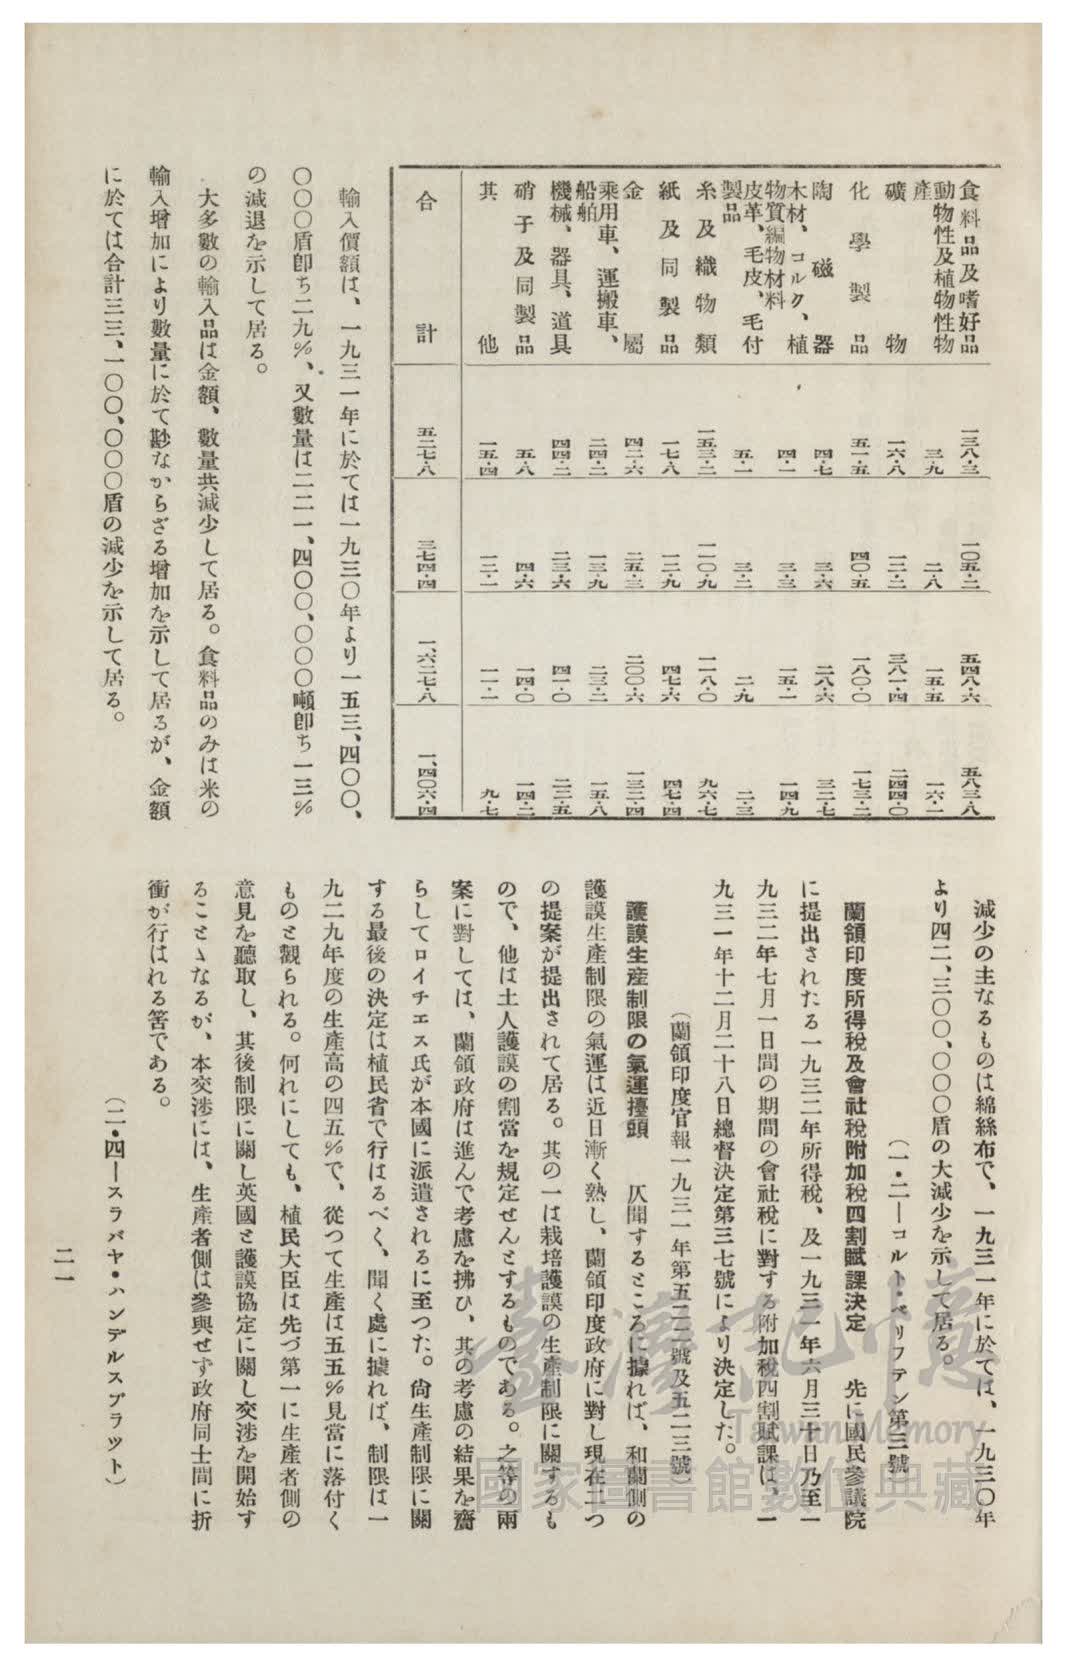 食料品及嗜好品 一三八・三 一〇五・二 五四八・六 五八三・八
動物性及植物性物
產 三・九 二・八 一五・五 一六・一
礦物 一六・八 一二・二 三八一・四 二四四・〇
化學製品 五一・五 四〇・五 一八〇・〇 一七三・二
陶磁器 四・七 三・六 二八・六 三二・七
木材、コルク、植
物質編物材料 四・一 三・三 一五・一 一四・九
皮革、毛皮、毛付
製品 五・一 三・二 二・九 二・三
糸及織物類 一五三・二 一一〇・九 一一八・〇 九六・七
紙及同製品 一七・八 一二・九 四七・六 四七・四
金屬 四二・六 二五・三 二〇〇・六 一三二・四
乘用車、運搬車、
船舶 二四・二 一三・九 二三・二 一五・八
機械、器具、道具 四四・二 二三・六 四一・〇 二二・五
硝子及同製品 五・八 四・六 一四・〇 一四・二
其他 一五・四 一二・一 一一・一 九・七
合計 五二七・八 三七四・四 一、六二七・八 一、四〇六・四
輸入價額は、一九三一年に於ては一九三〇年より一五三、四〇〇、
〇〇〇盾卽ち二九％、又數量は二二一、四〇〇、〇〇〇噸卽ち一三％
の減退を示して居る。
大多數の輸入品は金額、數量共減少して居る。食料品のみは米の
輸入增加により數量に於て尠なからざる增加を示して居るが、金額
に於ては合計三三、一〇〇、〇〇〇盾の減少を示して居る。
減少の主なるものは綿絲布で、一九三一年に於ては、一九三〇年
より四二、三〇〇、〇〇〇盾の大減少を示して居る。
（一・二―コルト・ベリフテン第三號）
蘭領印度所得稅及會社稅附加稅四割賦課決定　先に國民參議院
に提出されたる一九三二年所得稅、及一九三一年六月三十日乃至一
九三二年七月一日間の期間の會社稅に對する附加稅四割賦課は、一
九三一年十二月二十八日總督決定第三七號により決定した。
（蘭領印度官報一九三一年第五二二號及五二三號）
護謨生產制限の氣運擡頭　仄聞するところに據れば、和蘭側の
護謨生產制限の氣運は近日漸く熟し、蘭領印度政府に對し現在二つ
の提案が提出されて居る。其の一は栽培護謨の生產制限に關するも
ので、他は土人護謨の割當を規定せんとするものである。之等の兩
案に對しては、蘭領政府は進んで考慮を拂ひ、其の考慮の結果を齎
らしてロイチエス氏が本國に派遣されるに至つた。尙生產制限に關
する最後の決定は植民省で行はるべく、聞く處に據れば、制限は一
九二九年度の生產高の四五％で、從つて生產は五五％見當に落付く
ものと觀られる。何れにしても、植民大臣は先づ第一に生產者側の
意見を聽取し、其後制限に關し英國と護謨協定に關し交涉を開始す
ることゝなるが、本交涉には、生產者側は參與せず政府同士間に折
衝が行はれる筈である。
（二・四―スラバヤ・ハンデルスブラツト）
二一
臺灣記憶
Taiwan Memory
國家圖書館數位典藏